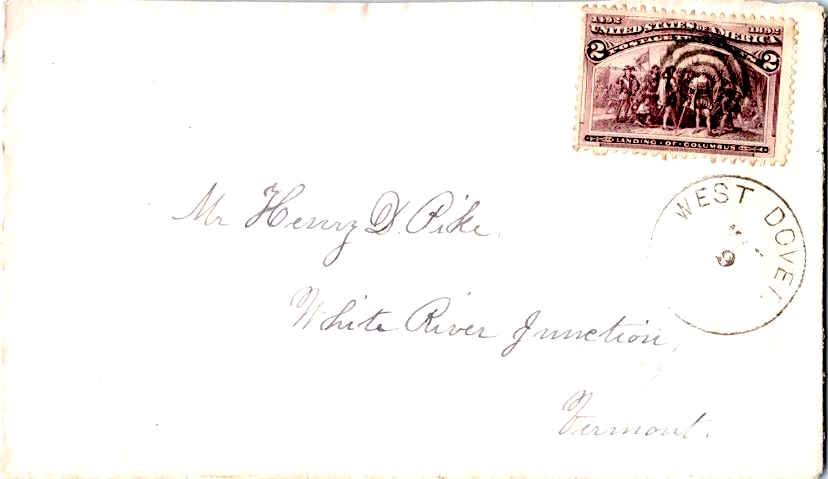 1492 1892
UNITED STATES OF AMERICA
2 POSTAGE TWO CENTS 2
LANDING · OF · COLUMBUS
WEST DOVER
9
Mr Henry D. Pike.
White River Junction,
Vermont.